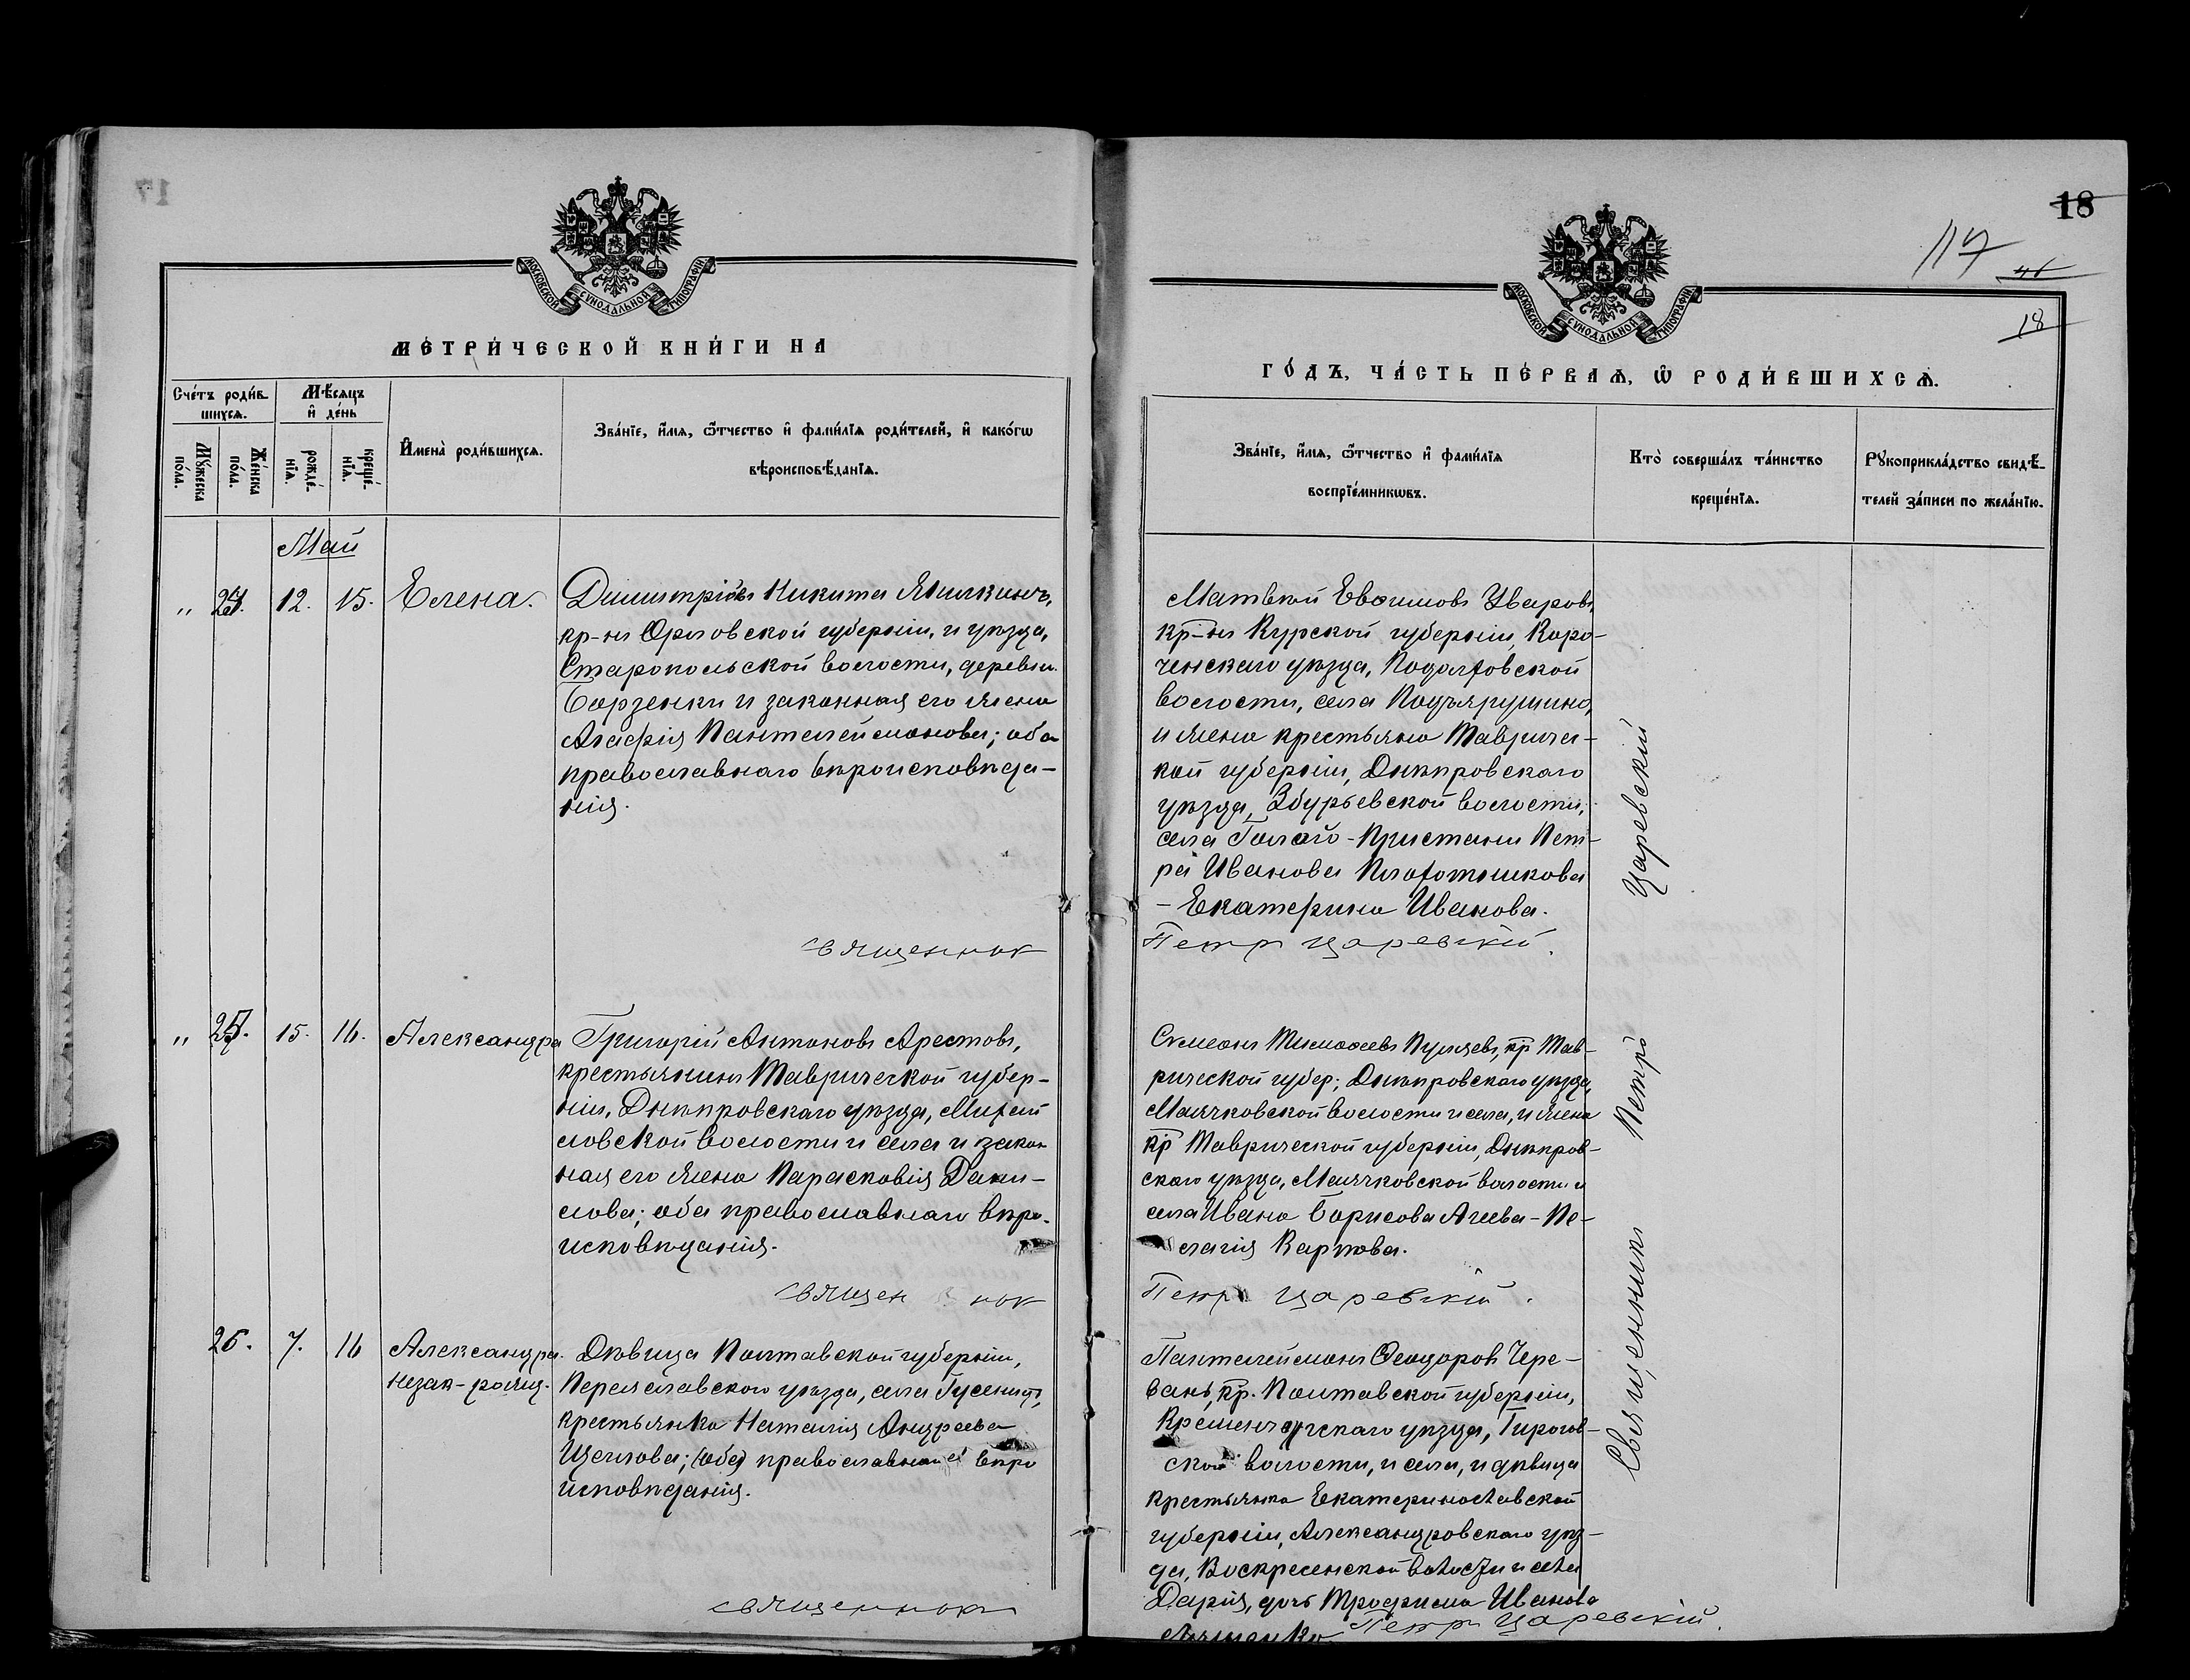 18
117
18
МОСКОВСКОЙ СѴНОДАЛЬНОЙ ТИПОГРАФІИ
МЕТРИ́ЧЕСКОЙ КНИ́ГИ НА
Сче́тъ роди́вшихсѧ.
Мѹ́жеска по́ла.
Же́нска по́ла.
Мѣ́сѧцъ и҆ де́нь
рожде́нїѧ.
креще́нїѧ.
И҆мена̀ роди́вшихсѧ.
Зва́нїе, и҆́мѧ, ѻ҆́тчество и҆ фами́лїѧ роди́телей, и҆ како́гѡ
вѣроисповѣ́данїѧ.
Май
„ 24. 12. 15. Елена. Димитріевъ Никита
кр-нъ Орловской губерніи, и уѣзда,
Старопольской волости, деревни
Борзенки и законная его жена
Агафія Пантелеймонова; оба
православнаго вѣроисповѣда-
нія.
священник
„ 25. 15. 16. Александра Григорій Антоновъ Арестовъ,
крестьянинъ Таврической губер-
ніи, Днѣпровскаго уѣзда, Михай
ловской волости и села и закон
ная его жена Парасковія Дани-
лова; оба православнаго вѣро-
исповѣданія.
священ ник
26. 7. 16 Александра. Дѣвица Полтавской губерніи,
незак-рожд. Переяславскаго уѣзда, села Гусенцъ,
крестьянка Наталія Андреева
православнаго вѣро
исповѣданія.
священник
МОСКОВСКОЙ СѴНОДАЛЬНОЙ ТИПОГРАФІИ
ГО́ДЪ, ЧА́СТЬ ПЕ́РВАѦ, Ѡ҆ РОДИ́ВШИХСѦ.
Зва́нїе, и҆́мѧ, ѻ҆́тчество и҆ фами́лїѧ
воспрїе́мникѡвъ.
Кто̀ соверша́лъ та́инство
креще́нїѧ.
Рѹкоприкла́дство свидѣ́-
телей за́писи по жела́нїю.
Матвѣй Евѳимовъ Уваровъ,
кр-нъ Курской губерніи, Коро-
ченскаго уѣзда, Подолховской
волости, села Подъяругино,
и жена крестьяна Тавричес-
кой губерніи, Днѣпровскаго
уѣзда, Збурьевской волости,
села Голой-Пристани Пет-
ра Иванова
- Екатерина Иванова.
Петр Царевскій.
Симеонъ Тимоѳеевъ кр Тав-
рической губер; Днѣпровскаго уѣзда,
Маячковской волости и села, и жена
кр Таврической губерніи, Днѣпров-
скаго уѣзда, Маячковской волости и
села Ивана Борисова Агеева - Пе-
лагія Карпова.
Петр Царевскій.
Пантелеймонъ Ѳеодоровъ Чере-
вань, кр. Полтавской губерніи,
Кременчугскаго уѣзда,
ской волости, и села, и дѣвица
крестьянка Екатеринославской
губерніи, Александровскаго уѣз-
да, Воскресенской волости и села
Дарія, дочь Трофима Иванова
Петр Царевскій.
Священникъ Петръ Царевскій